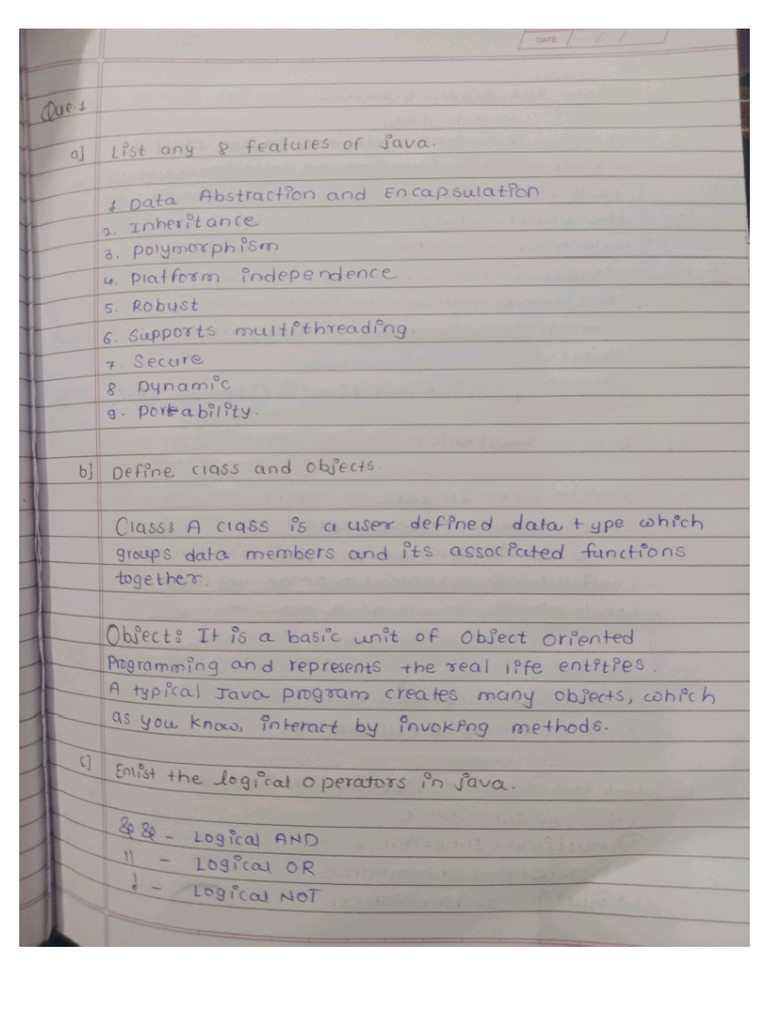 DATE / /
Que.1
a] List any 8 features of Java.
1. Data Abstraction and Encapsulation
2. Inheritance
3. Polymorphism
4. Platform independence
5. Robust
6. Supports multithreading
7. Secure
8. Dynamic
9. Portability.
b] Define class and objects.
Class: A class is a user defined data type which
groups data members and its associated functions
together.
Object: It is a basic unit of Object Oriented
Programming and represents the real life entities.
A typical Java program creates many objects, which
as you know, interact by invoking methods.
c] Enlist the logical operators in java.
&& - Logical AND
|| - Logical OR
! - Logical NOT